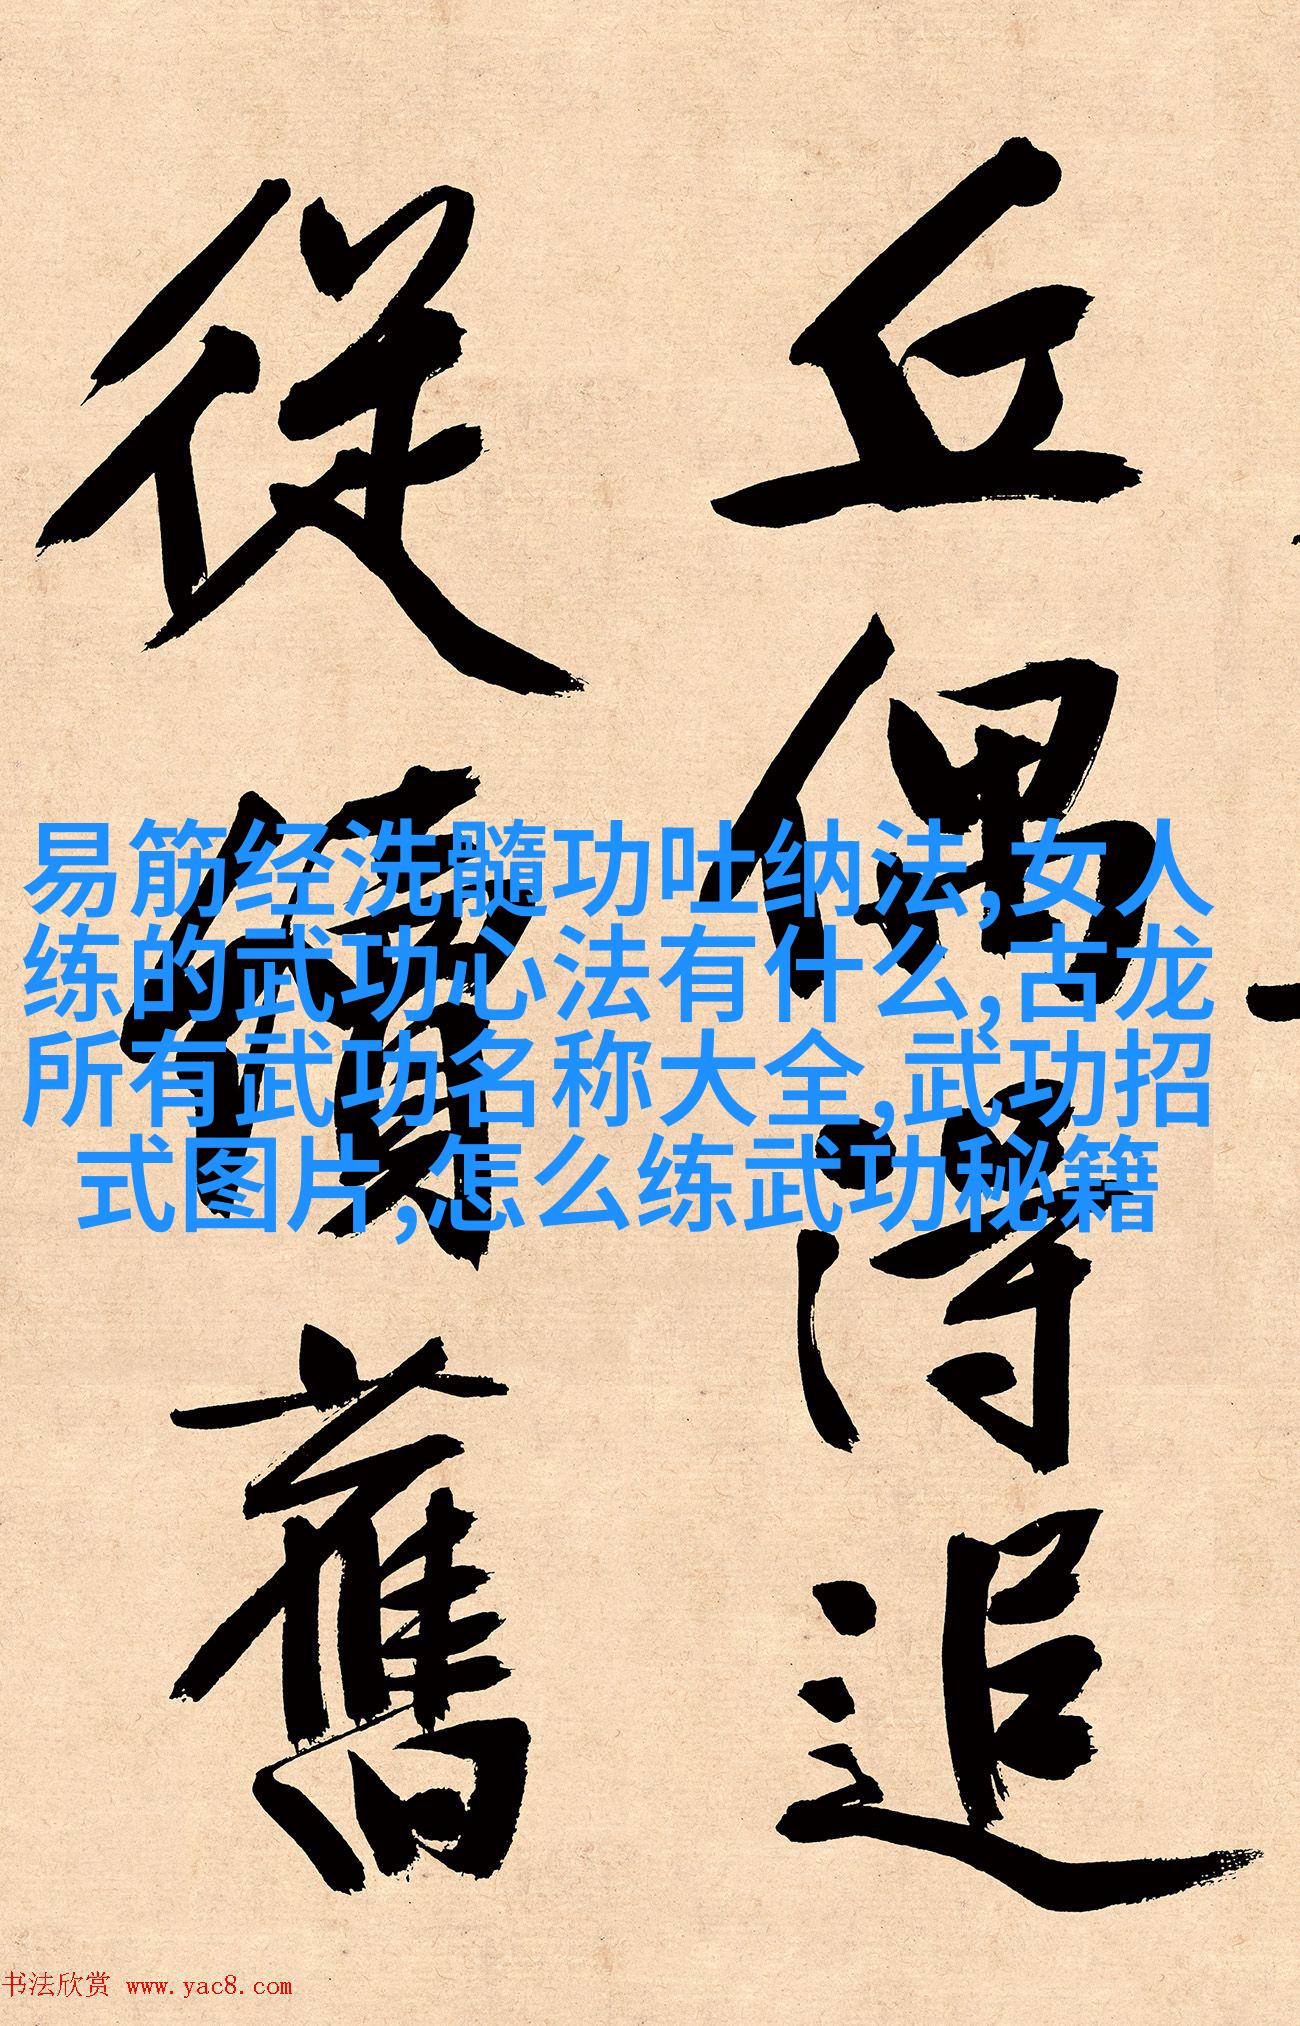 丘偶得追
從舊
易筋经洗髓功吐纳法,女人
练的武功心法有什么,古龙
所有武功名称大全,武功招
式图片,怎么练武功秘籍
书法欣赏 www.yac8.com